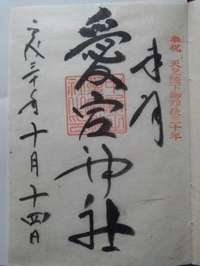 奉祝 天皇陛下御即位三十年
愛宕神社
平成三十年十月十四日